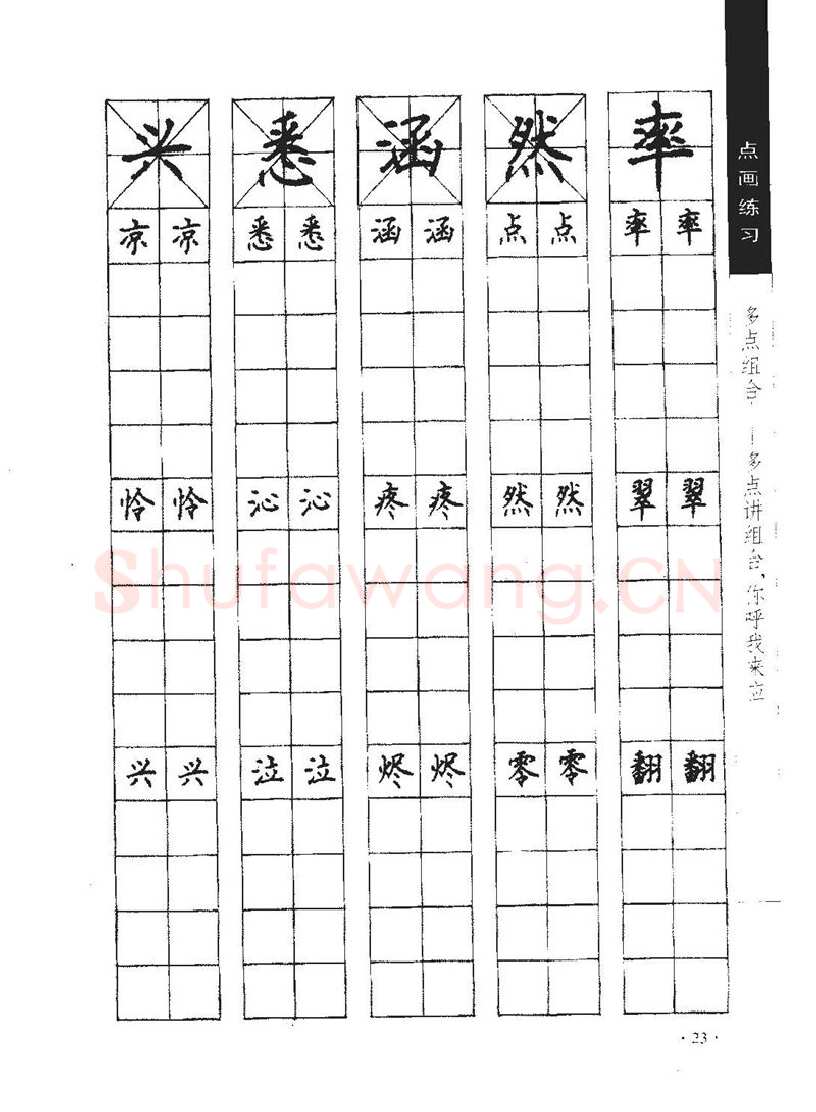 点画练习
多点组合——多点讲组合,你呼我来应
率
率率
翠翠
翻翻
然
点点
然然
零零
涵
涵涵
疼疼
烬烬
悉
悉悉
沁沁
泣泣
兴
凉凉
怜怜
兴兴
Shufawang.CN
·23·